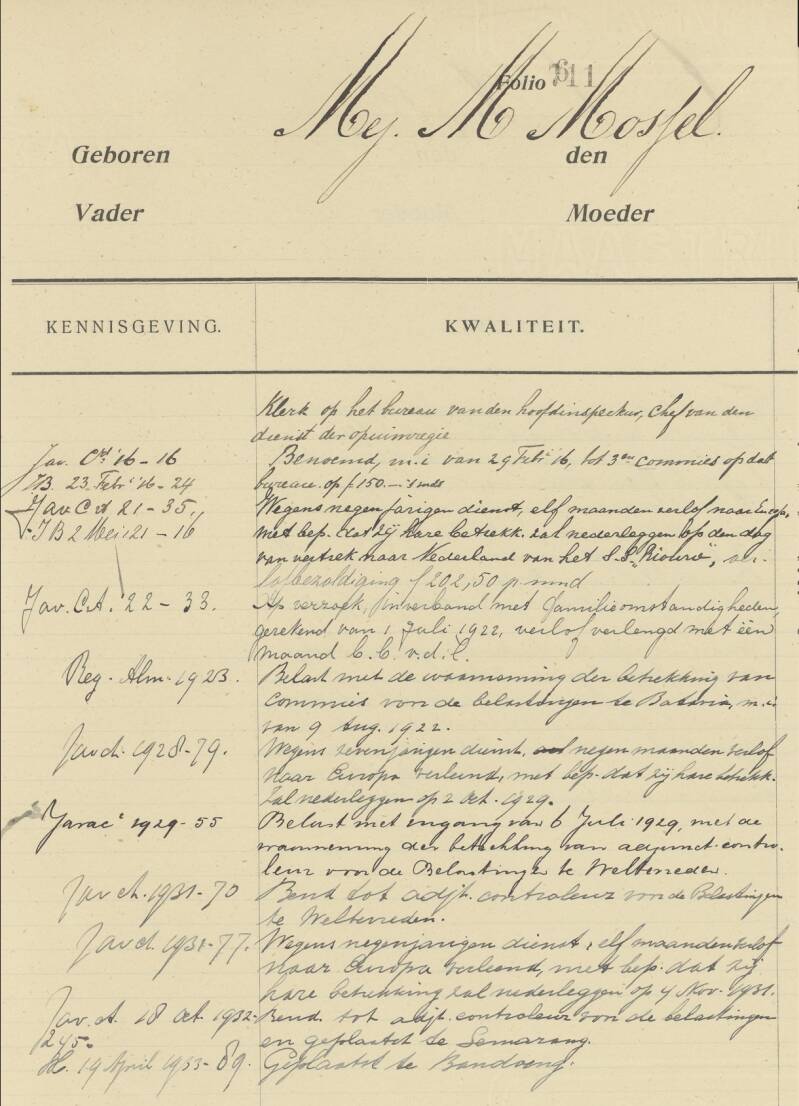 Folio 611
Mej. M Mossel.
Geboren den
Vader Moeder
KENNISGEVING. KWALITEIT.
Klerk op het bureau van den hoofdinspecteur, Chef van den
dienst der opiumregie
Jav. Crt '16 - 16 Benoemd, m.i. van 29 Febr 16, tot 3en commies op dat
JB. 23 Febr '16 - 24 bureau op f 150.- 's mds
Jav Ct 21 - 35, Wegens negenjarigen dienst, elf maanden verlof naar Europa,
JB 2 Mei '21 - 16 met bep. dat zij hare betrekk. zal nederleggen op den dag
van vertrek naar Nederland van het S.S.
Verlofbezoldiging f 202,50 p. mnd
Jav. Ct. '22 - 33. Op verzoek, in verband met familieomstandigheden,
gerekend van 1 Juli 1922, verlof verlengd met één
maand b.b. v.d.l.
Reg. Alm. 1923. Belast met de waarneming der betrekking van
commies voor de belastingen te Batavia, m.i.
van 9 Aug. 1922.
Jav ct. 1928-79. Wegens zevenjarigen dienst, negen maanden verlof
naar Europa verleend, met bep. dat zij hare betrekk.
zal nederleggen op 2 Oct. 1929.
"Javac" 1929-55 Belast met ingang van 6 Juli 1929, met de
waarneming der betrekking van adjunct-contro-
leur voor de Belastingen te Weltevreden.
Jav ct. 1931-70 Bend tot adjt. controleur von de Belastingen
te Weltevreden.
Jav ct. 1931-77. Wegens negenjarigen dienst, elf maanden verlof
naar Europa verleend, met bep. dat zij
hare betrekking zal nederleggen op 4 Nov. 1931.
Jav. ct. 18 Oct. 1932- Bend. tot adjt. controleur von de belastingen
245. en geplaatst te Semarang.
19 April 1933-89. Geplaatst te Bandoeng.